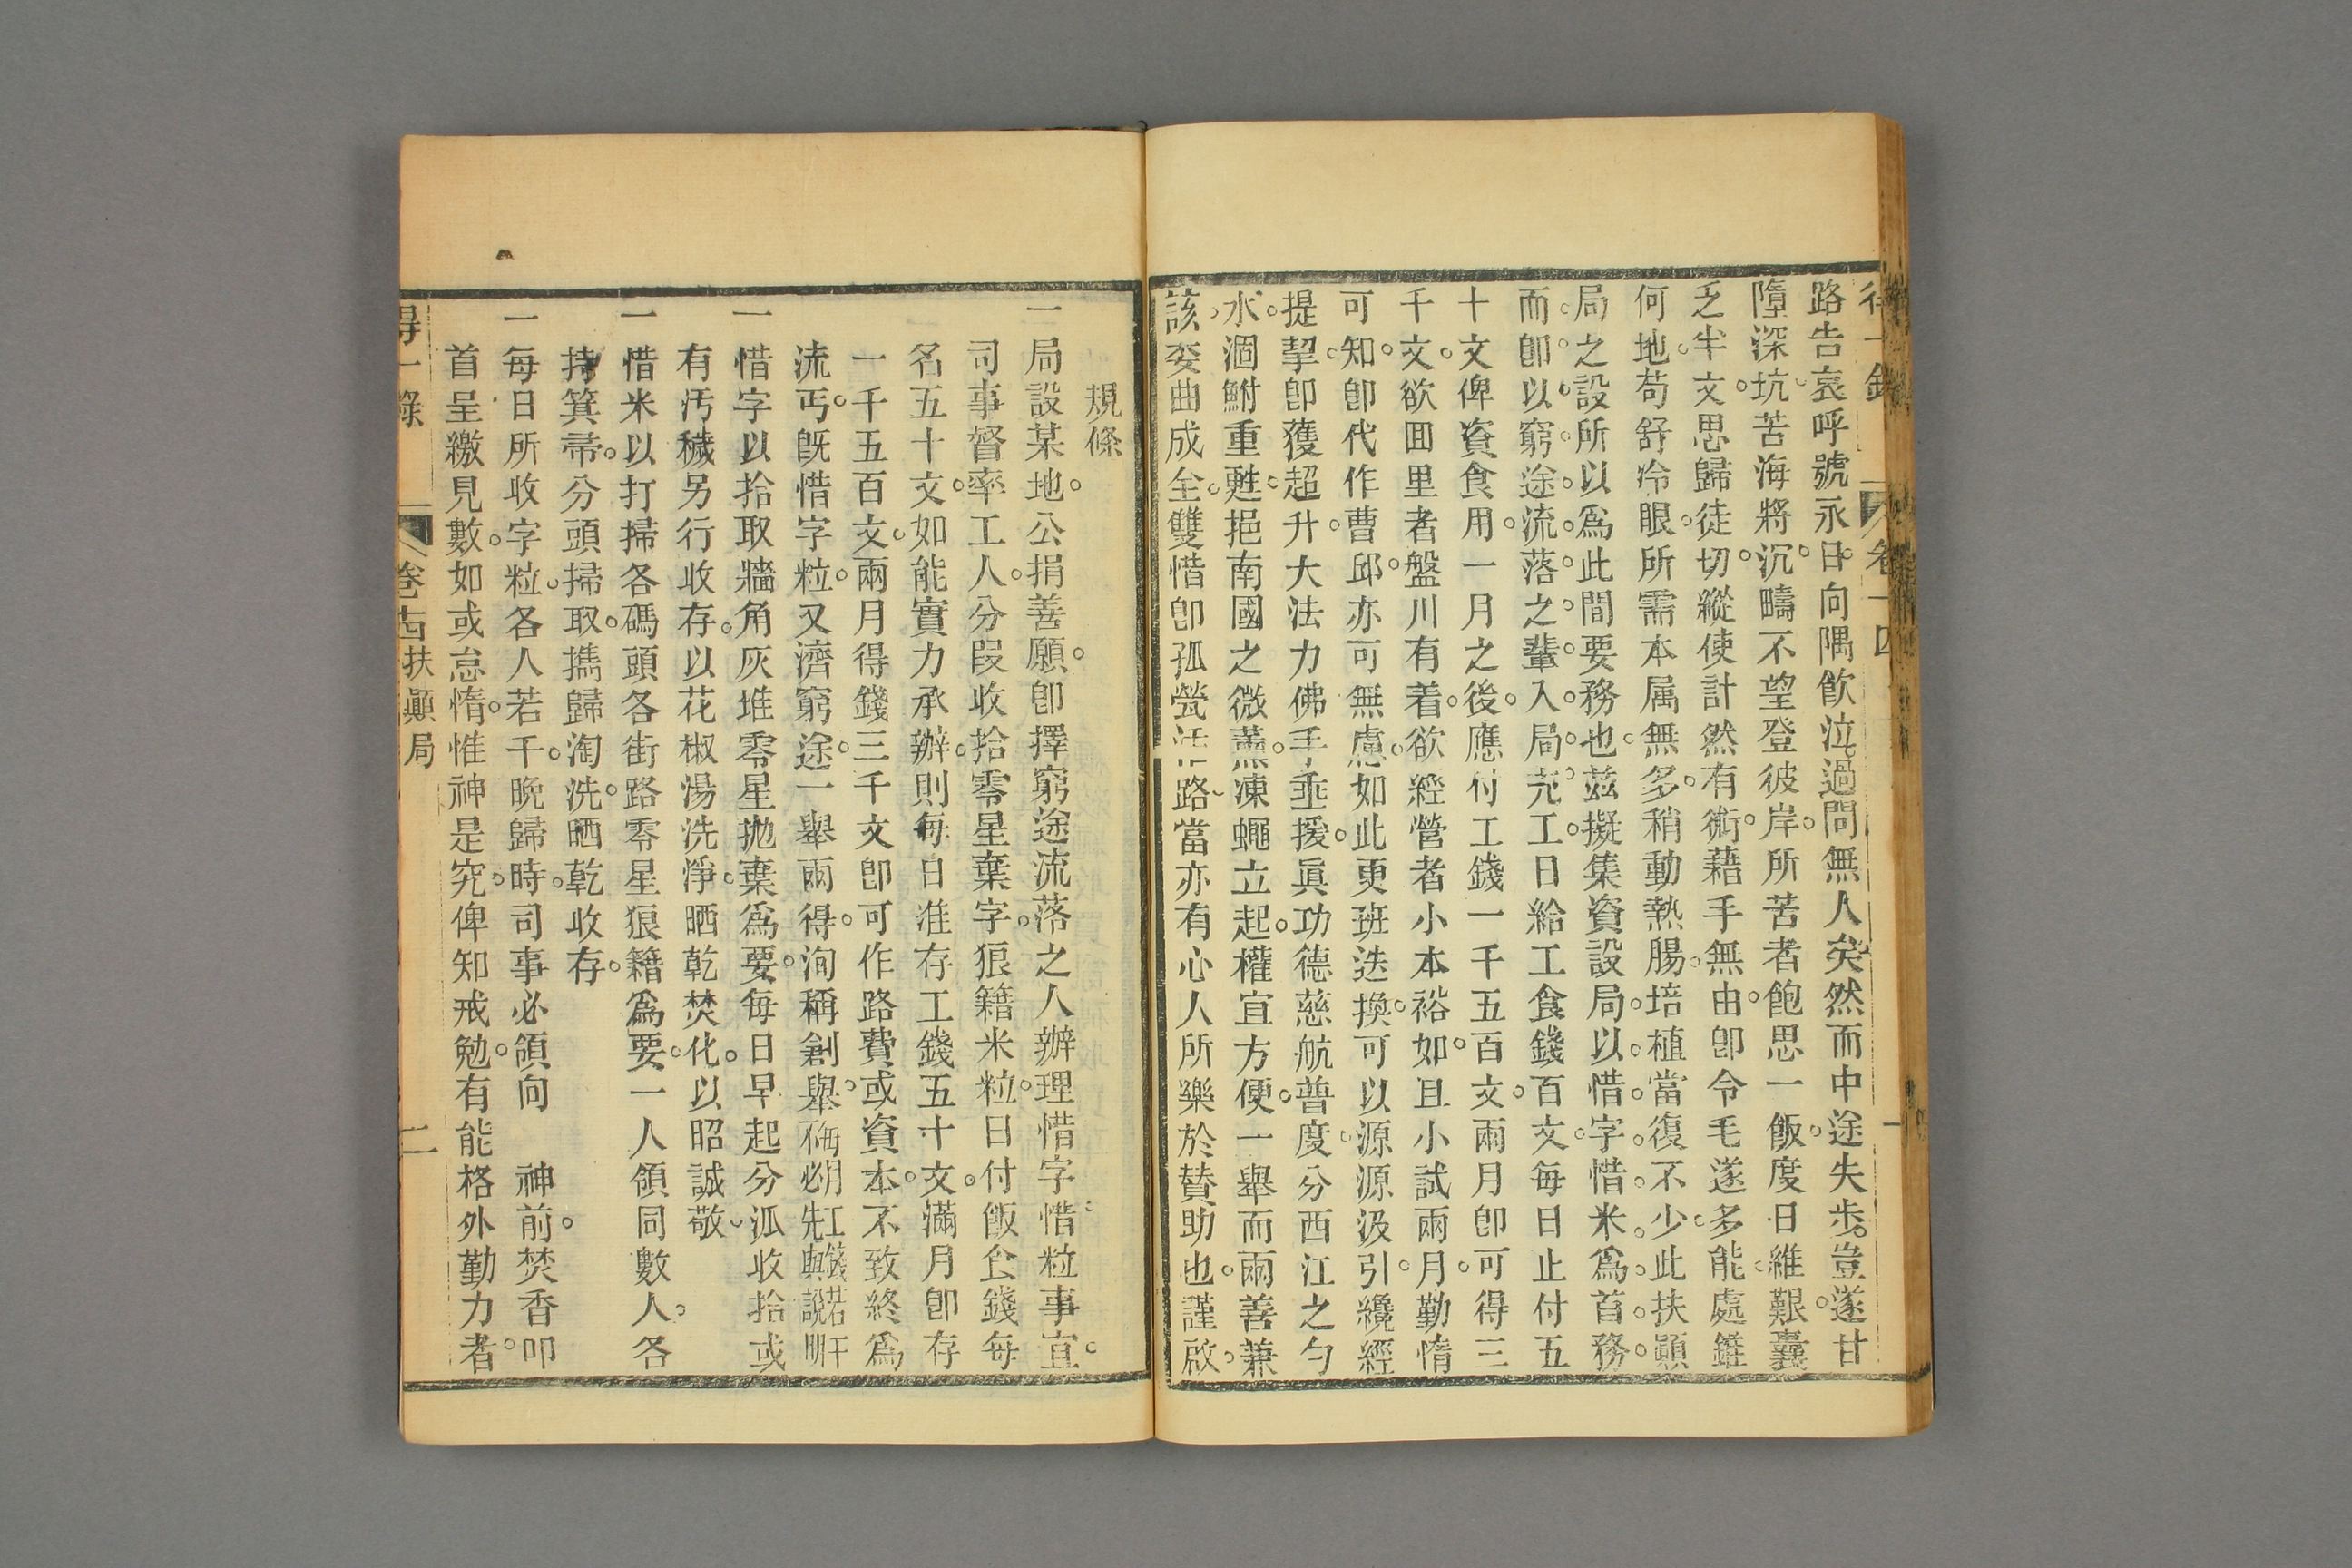 得一錄
卷十四
一
路告哀呼號永日向隅飮泣過問無人矣然而中途失步。豈遂甘
墮深坑苦海將沉。疇不望登彼岸。所苦者飽思一飯。度日維艱。囊
乏半文。思歸徒切。縱使計然有術。藉手無由。卽令毛遂多能。處錐
何地。苟舒冷眼。所需本属無多。稍動熱腸。培植當復不少。此扶顚
局之設所以爲此間要務也。茲擬集資設局。以惜字惜米爲首務。
而卽以窮途流落之輩。入局充工。日給工食錢百文。每日止付五
十文俾資食用。一月之後。應付工錢一千五百文。兩月卽可得三
千文。欲囬里者。盤川有着。欲經營者。小本裕如。且小試兩月。勤惰
可知。卽代作曹邱。亦可無慮。如此更班迭換。可以源源汲引。纔經
提挈。卽獲超升。大法力佛手垂援。眞功德慈航普度。分西江之勺
水。涸鮒重甦。挹南國之微薰。凍蠅立起。權宜方便。一舉而兩善兼
該。委曲成全。雙惜卽孤煢活路。當亦有心人所樂於贊助也。謹啟。
規條
一局設某地。公捐善願。卽擇窮途流落之人辦理惜字惜粒事宜。
司事督率工人。分段收拾零星棄字。狼籍米粒。日付飯食錢每
名五十文。如能實力承辦。則每日准存工錢五十文。滿月卽存
一千五百文。兩月得錢三千文卽可作路費或資本。不致終爲
流丐。旣惜字粒。又濟窮途。一舉兩得。洵稱創舉。每月工錢若干不必先與說明
一惜字以拾取牆角灰堆零星抛棄爲要。每日早起分派收拾或
有汚穢另行收存。以花椒湯洗淨。晒乾焚化。以昭誠敬。
一惜米以打掃各碼頭各街路零星狼籍爲要。一人領同數人。各
持箕帚。分頭掃取。攜歸淘洗。晒乾收存。
一每日所收字粒。各人若干。晚歸時。司事必領向　神前。焚香叩
首呈繳見數。如或怠惰。惟神是究。俾知戒勉。有能格外勤力者。
得一錄
卷十四扶顚局
二